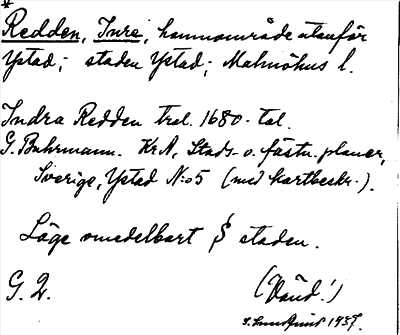 *
Redden, Inre, hamnområde utanför
Ystad; staden Ystad; Malmöhus l.
Indra Redden trol. 1680-tal.
G. Buhrmann. KrA, Stads- o. fästn. planer,
Sverige, Ystad N:o 5 (med kartbeskr.).
Läge omedelbart S staden.
G. 2.
(Vänd!)
S. Lundqvist 1937.